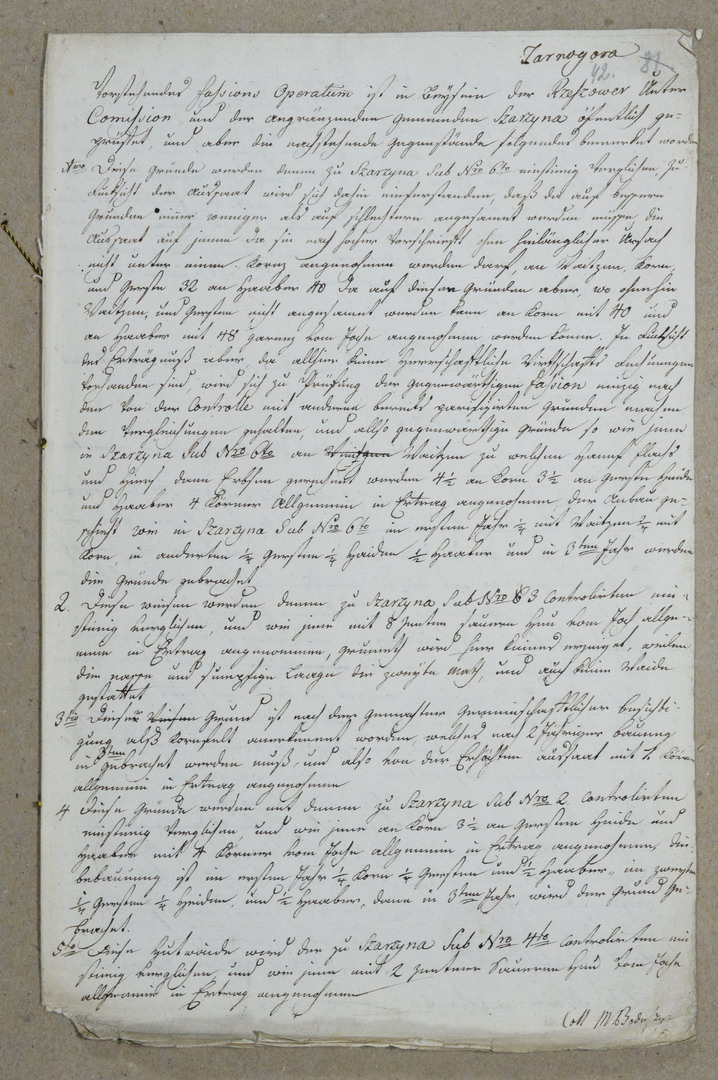 Tarnogora
81
42.
Vorstehendes Fassions Operatum ist in Beyseyn der Rzeszower Unter
Comission und der angränzenden Gemeinden Szarzyna öfentlich ge-
prüffet, und aber die nachstehende Gegenstände folgendes bemerket worden
Nro Diese Gründe werden denen zu Szarzyna Sub Nro 6to einstimig verglichen. In
Rücksicht der Aussaat wird sich dahin einferstanden, daß da auf bessern
Gründen immer weniger als auf schlechtern angesaamt werden müsse, die
Aussaat auf jenen da sie nach hoher Vorschrieft ohne hinlänglicher Ursach
nicht unter einen Koretz angenohmen werden darf, an Waitzen, Korn,
und Gerste 32 an Haaber 40 Da auf diesen Gründen aber, wo ohnehin
Waitzen, und Gersten nicht angesaamt werden kann an Korn mit 40 und
an Haaber mit 48 garnetz vom Joche angenohmen werden könne. In Rücksicht
des Erträgnuß aber da allhier keine Herrschaftliche Wirtschafts Rechnungen
vorhanden sind, wird sich zu Prüfung der gegenwärtigen Fassion einzig nach
den von der Controlle mit anderen bereits parifizirten Gründen
den Vergleichungen gehalten, und allso gegenwärtige Gründe so wie jene
in Szarzyna Sub Nro 6to an Waitzen zu welchen Hanf Flachs
und Hiers dann Erbsen gerechnet werden 4½ an Korn 3½ an Gerste Heide
und Haaber 4 Körner Allgemein in Ertrag angenohmen der Anbau ge-
schieht wie in Szarzyna Sub Nro 6to im ersten Jahr ¼ mit Waitzen ¾ mit
Korn, in anderten ¼ Gersten ¼ Haiden ½ Haaber und in 3ten Jahr werden
die Gründe gebrachet
2. Diese wiesen werden denen zu Szarzyna Sub Nro 3 Controlirten ein-
stimig verglichen, und wie jene mit 8 Zenten sauern Heu vom Joch allge-
mein in Ertrag angenommen, grumeth wird hier keines erzeuget, weilen
die nasse und sumpfige Laage die zweyte Math, und auch keine Waide
gestattet
3tio Dieser Grund ist nach der gemachten Gemeinschaftlicher besichti-
gung alß Kornfelt anerkennet worden, welches nach 2 Jähriger bauung
in 3ten gebrachet werden muß, und also von der Erhöhten aussaat mit Körner
allgemein in Ertrag angenohmen
4 Diese Gründe werden mit denen zu Szarzyna Sub Nro 2 Controlirten
einstimig verglichen, und wie jene an Korn 3½ an Gersten Heide und
Haaber mit 4 Körner vom Joche allgemein in Ertrag angenohmen, die
bebauung ist im ersten Jahr ¼ Korn ¼ Gersten und ½ Haaber, im zweyten
¼ Gersten ¼ Heiden, und ½ Haaber, dann in 3ten Jahr, wird der Grund ge-
brachet.
5to Diese Hutwaide wird der zu Szarzyna Sub Nro 4to Controlirten ein
stimig verglichen und wie jene mit 2 Zentner Sauern Heu vom Joche
allgemein in Ertrag angenohmen